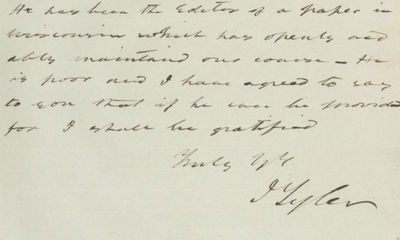 He has been the Editor of a paper in
Wisconsin which has openly and
ably maintaind our course - He
is poor and I have agreed to say
to you that if he can be provided
for I shall be gratified
Truly Yrs
J Tyler